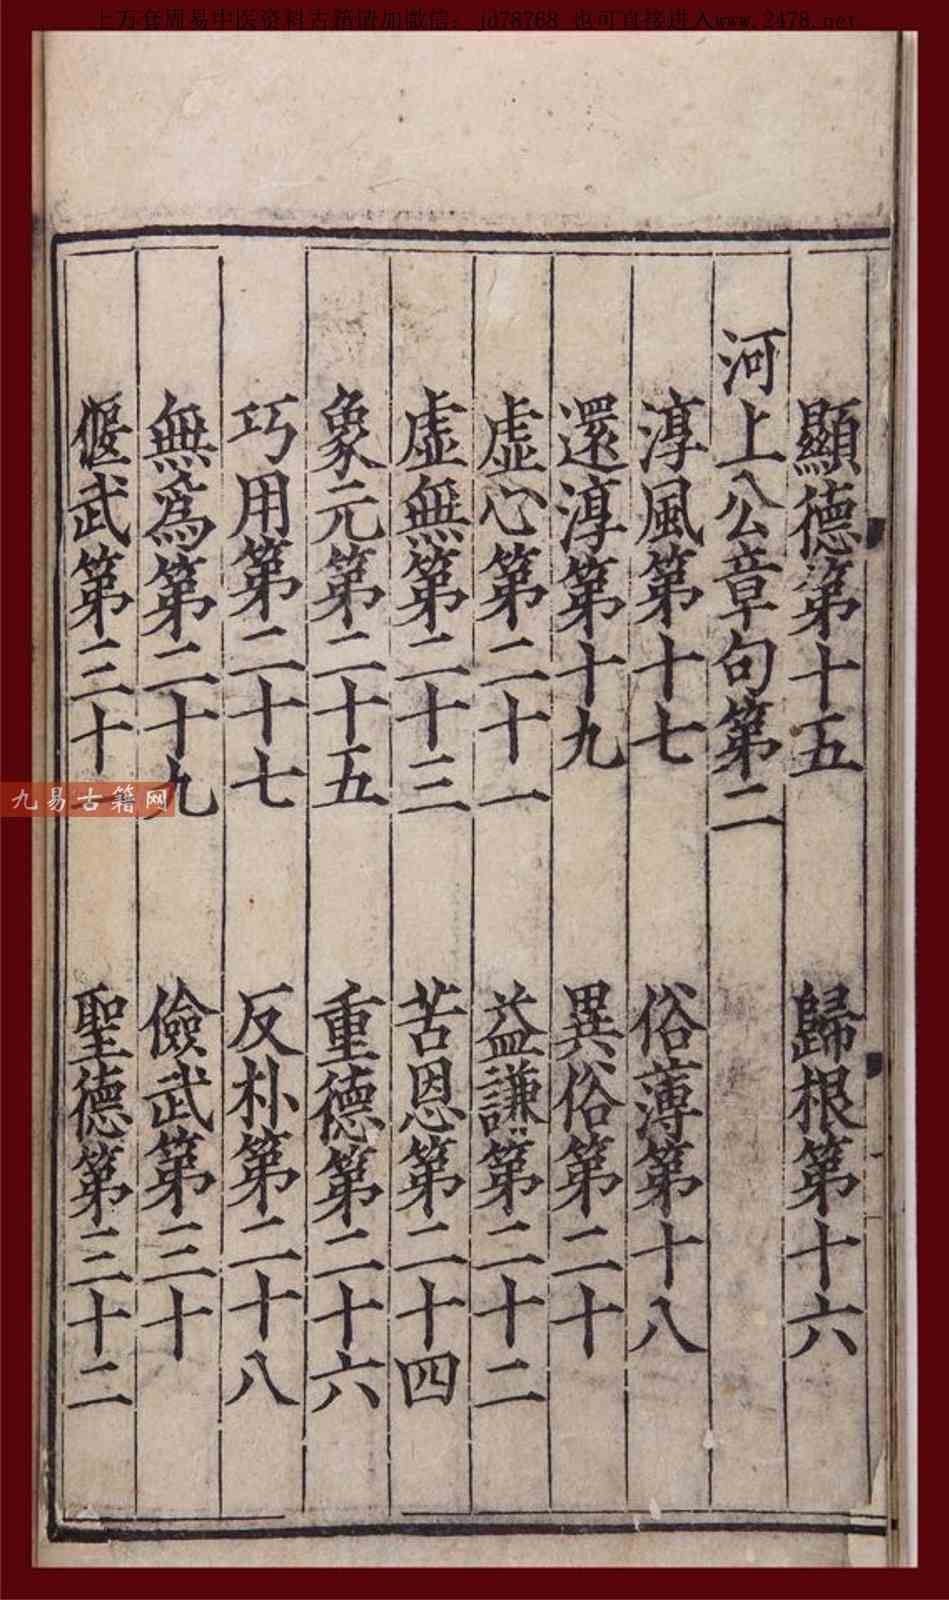 上万套周易中医资料古籍请加微信：jd78768 也可直接进入www.2478.net
顯德第十五 歸根第十六
河上公章句第二
淳風第十七 俗薄第十八
還淳第十九 異俗第二十
虛心第二十一 益謙第二十二
虛無第二十三 苦恩第二十四
象元第二十五 重德第二十六
巧用第二十七 反朴第二十八
無爲第二十九 儉武第三十
偃武第三十一 聖德第三十二
九易古籍网